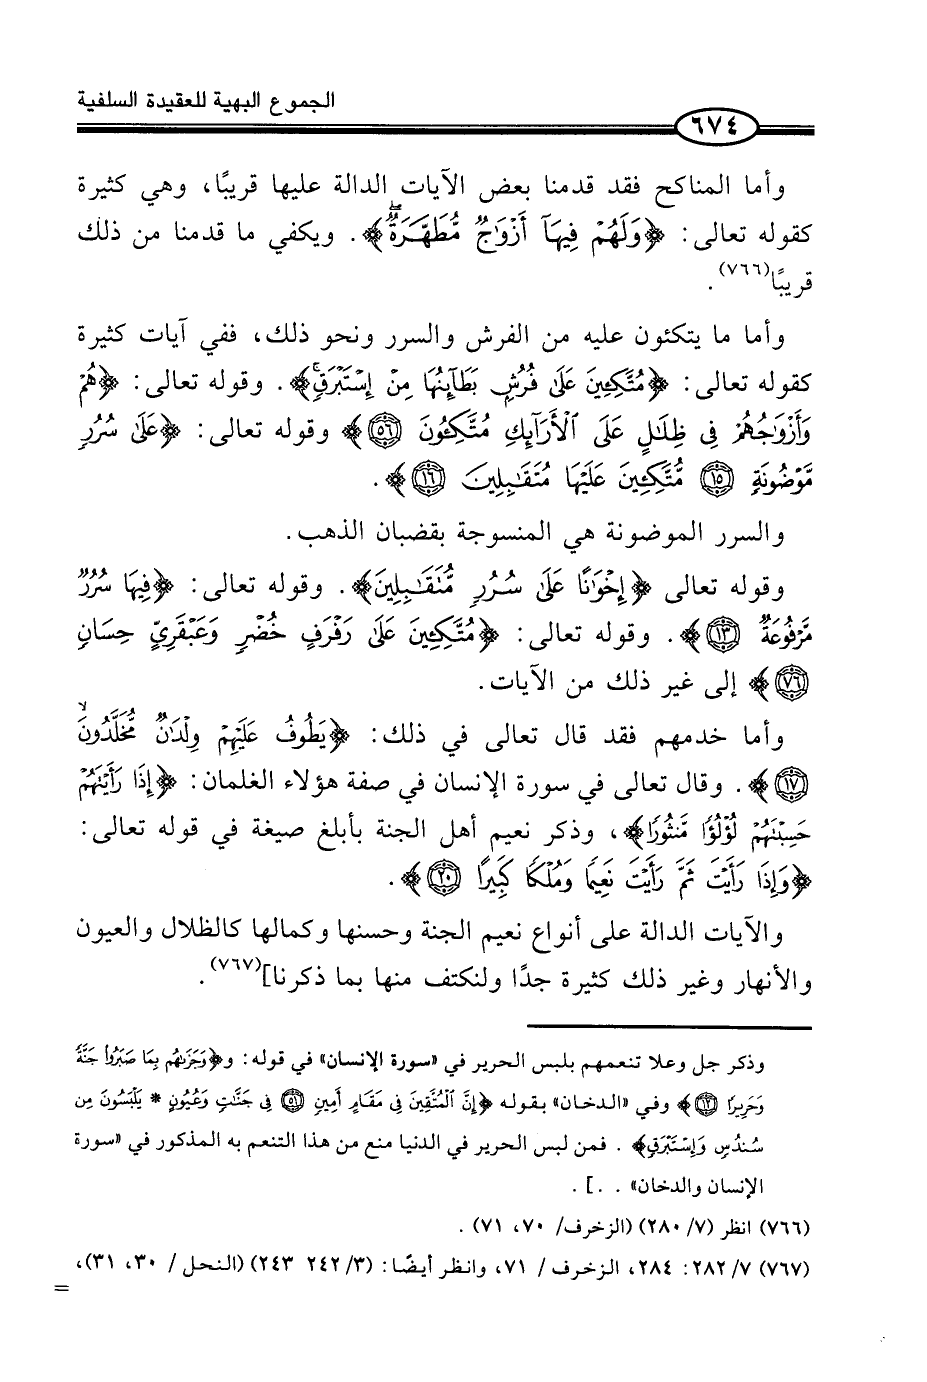 الجموع البهية للعقيدة السلفية
٦٧٤
وأما المناكح فقد قدمنا بعض الآيات الدالة عليها قريبًا، وهي كثيرة
كقوله تعالى: ﴿وَلَهُمْ فِيهَآ أَزْوَٰجٌ مُّطَهَّرَةٌ﴾. ويكفي ما قدمنا من ذلك
قريبًا(٧٦٦).
وأما ما يتكئون عليه من الفرش والسرر ونحو ذلك، ففي آيات كثيرة
كقوله تعالى: ﴿مُتَّكِـِٔينَ عَلَىٰ فُرُشٍۭ بَطَآئِنُهَا مِنْ إِسْتَبْرَقٍ﴾. وقوله تعالى: ﴿هُمْ
وَأَزْوَٰجُهُمْ فِى ظِلَٰلٍ عَلَى ٱلْأَرَآئِكِ مُتَّكِـُٔونَ (٥٦)﴾ وقوله تعالى: ﴿عَلَىٰ سُرُرٍ
مَّوْضُونَةٍ (١٥) مُّتَّكِـِٔينَ عَلَيْهَا مُتَقَٰبِلِينَ (١٦)﴾.
والسرر الموضونة هي المنسوجة بقضبان الذهب.
وقوله تعالى ﴿إِخْوَٰنًا عَلَىٰ سُرُرٍ مُّتَقَٰبِلِينَ﴾. وقوله تعالى: ﴿فِيهَا سُرُرٌ
مَّرْفُوعَةٌ (١٣)﴾. وقوله تعالى: ﴿مُتَّكِـِٔينَ عَلَىٰ رَفْرَفٍ خُضْرٍ وَعَبْقَرِىٍّ حِسَانٍ
(٧٦)﴾ إلى غير ذلك من الآيات.
وأما خدمهم فقد قال تعالى في ذلك: ﴿يَطُوفُ عَلَيْهِمْ وِلْدَٰنٌ مُّخَلَّدُونَ
(١٧)﴾. وقال تعالى في سورة الإنسان في صفة هؤلاء الغلمان: ﴿إِذَا رَأَيْتَهُمْ
حَسِبْتَهُمْ لُؤْلُؤًا مَّنثُورًا﴾، وذكر نعيم أهل الجنة بأبلغ صيغة في قوله تعالى:
﴿وَإِذَا رَأَيْتَ ثَمَّ رَأَيْتَ نَعِيمًا وَمُلْكًا كَبِيرًا (٢٠)﴾.
والآيات الدالة على أنواع نعيم الجنة وحسنها وكمالها كالظلال والعيون
والأنهار وغير ذلك كثيرة جدًا ولنكتف منها بما ذكرنا](٧٦٧).
وذكر جل وعلا تنعمهم بلبس الحرير في «سورة الإنسان» في قوله: و﴿وَجَزَىٰهُم بِمَا صَبَرُوا۟ جَنَّةً
وَحَرِيرًا (١٢)﴾ وفي «الدخان» بقوله ﴿إِنَّ ٱلْمُتَّقِينَ فِى مَقَامٍ أَمِينٍ (٥١) فِى جَنَّٰتٍ وَعُيُونٍ * يَلْبَسُونَ مِن
سُندُسٍ وَإِسْتَبْرَقٍ﴾ . فمن لبس الحرير في الدنيا منع من هذا التنعم به المذكور في «سورة
الإنسان والدخان» . .] .
(٧٦٦) انظر (٧/ ٢٨٠) (الزخرف/ ٧٠، ٧١) .
(٧٦٧) ٧/ ٢٨٢: ٢٨٤، الزخرف/ ٧١، وانظر أيضًا: (٣/ ٢٤٢ ٢٤٣) (النحل/ ٣٠، ٣١)،
=